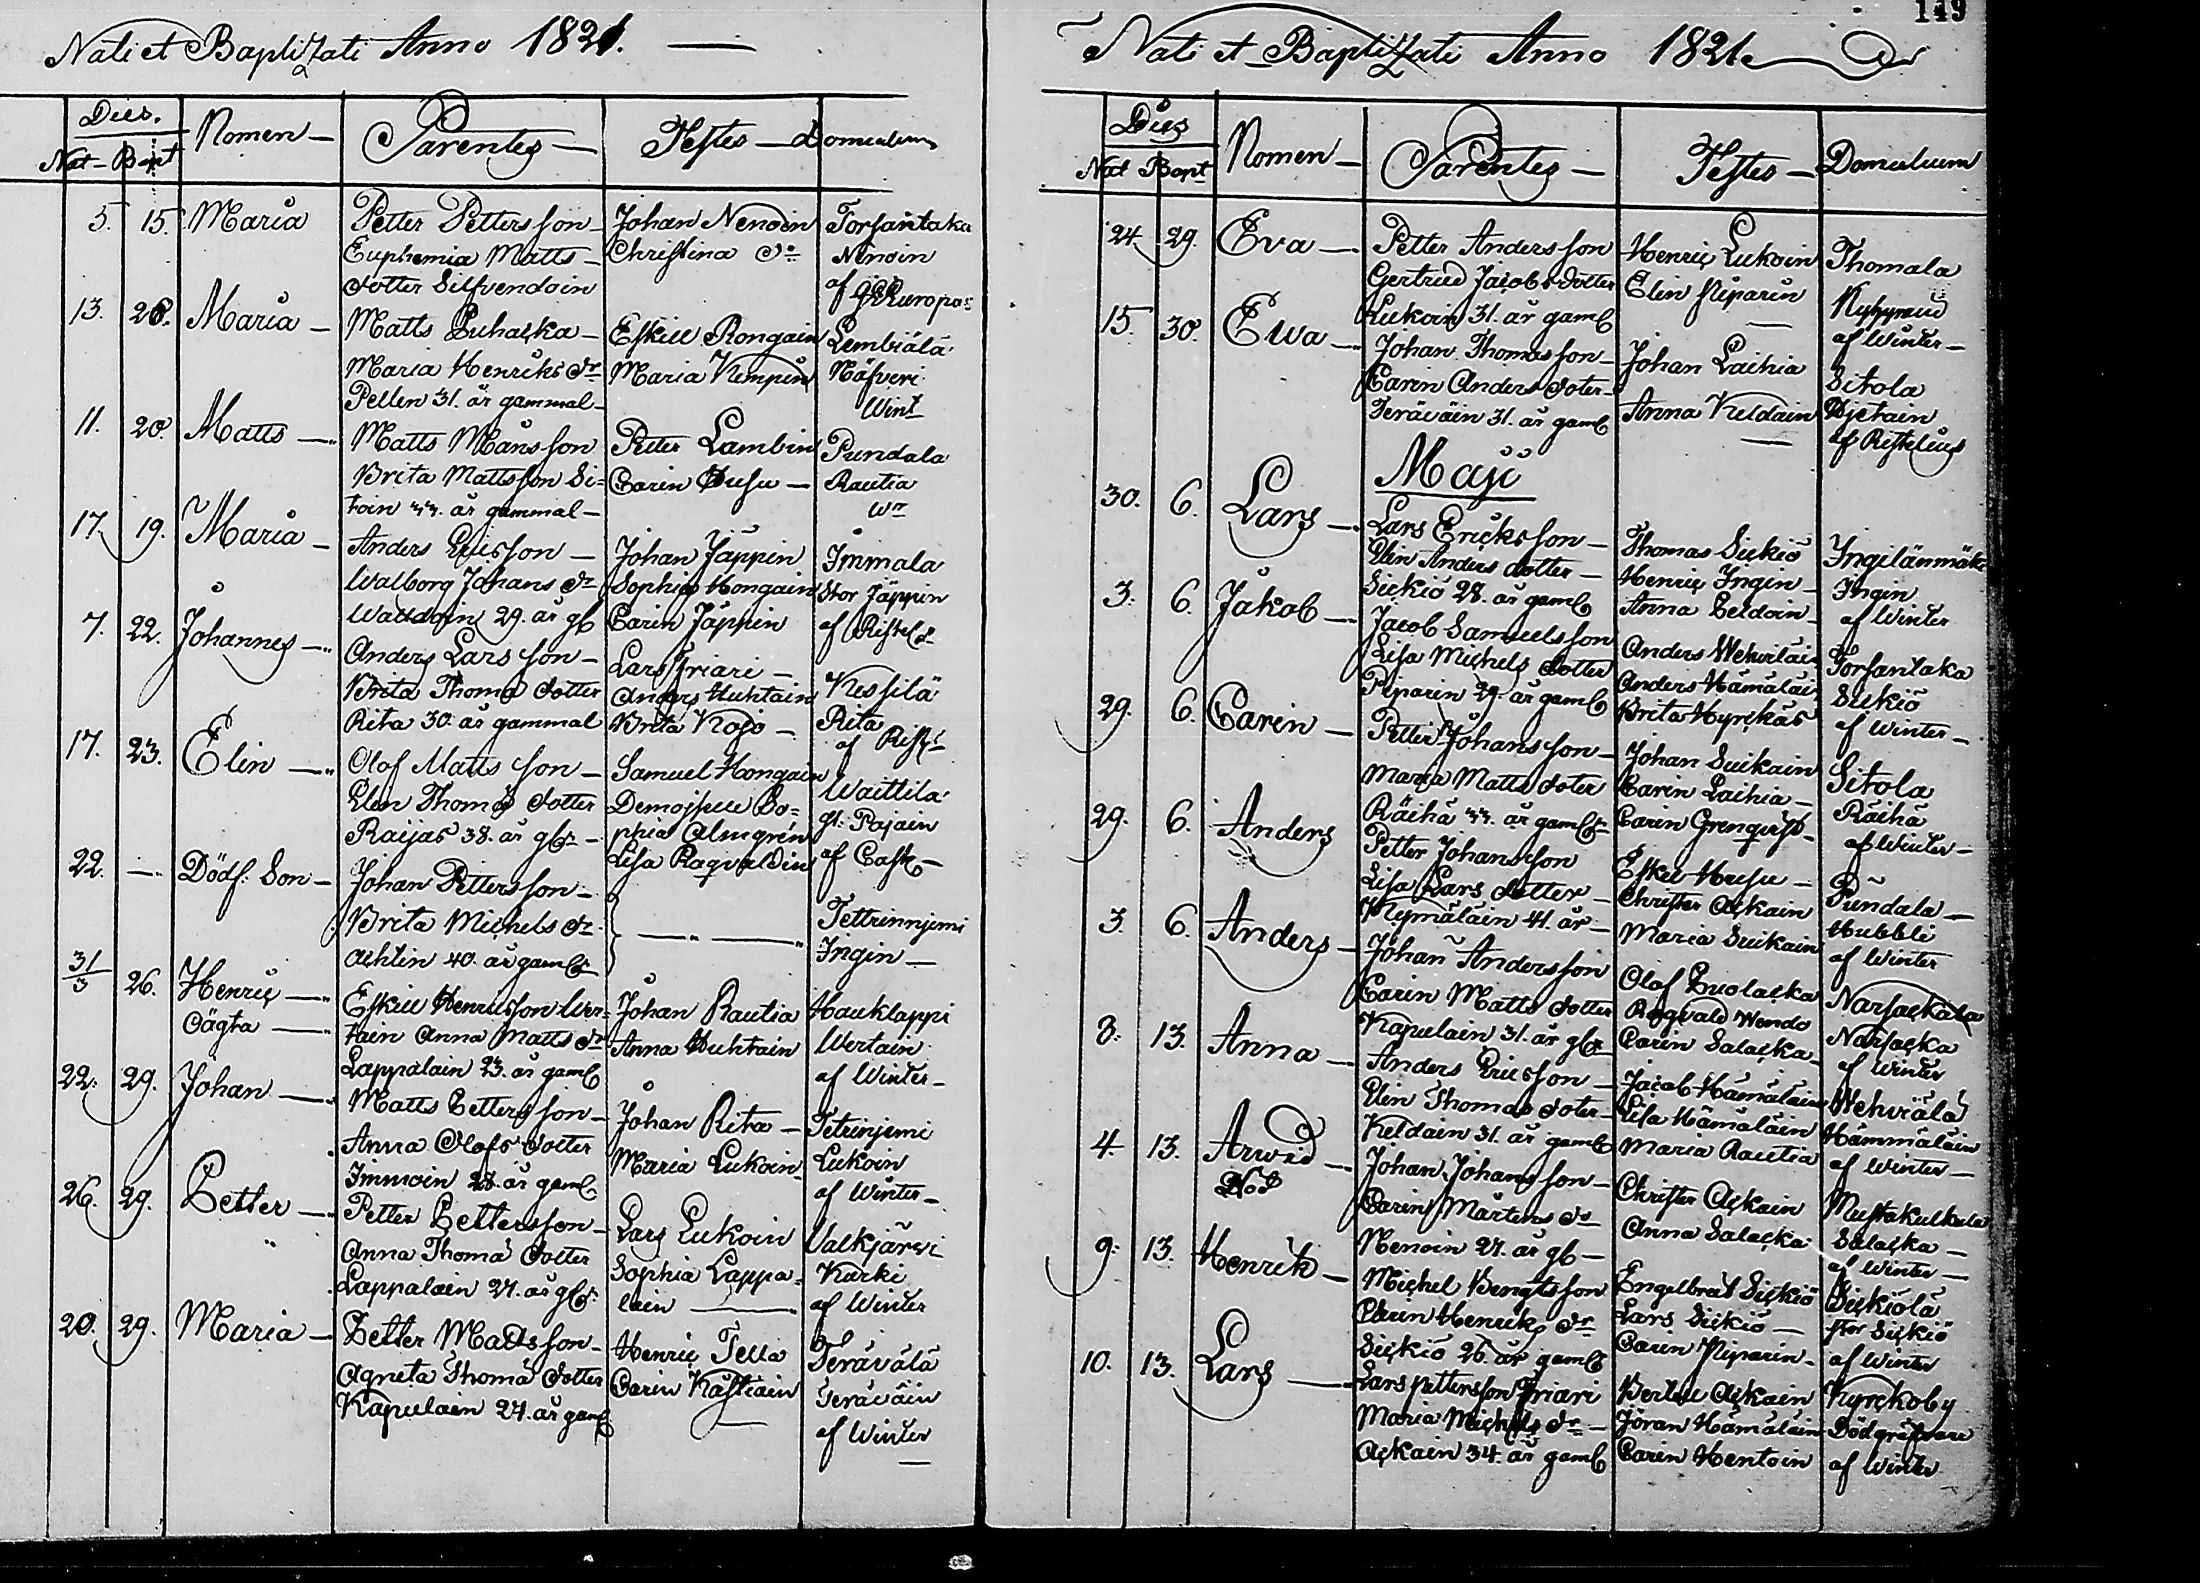 Nati et Baptizati Anno 1821.
Dies.
Nat - Bapt
Nomen
Parentes
Testes
Domicilium
5. 15. Maria
Petter Pettersson
Euphemia Matts
dotter Silfvendoin
Johan Nenoin
Christina Dr
Torsantaka
Nenoin
af
13. 20. Maria
Matts Puhacka
Maria Henriks dr
Pellen 31. år gammal
Eskill Rongain
Maria Kempin
Lembiälä
Näfveri
Wint
11. 20. Matts
Matts Månsson
Brita Mattsson Si=
toin 33. år gammal
Petter Lambin
Carin Husu
Pundala
Rautia
Wr
17 19. Maria
Anders Ericsson
Walborg Johans dr
29. år gl
Johan Jäppin
Sophia Hongain
Carin Jäppin
Immala
Stor Jäppin
af Ristel
7. 22. Johannes
Anders Larsson
Brita Thomas dotter
Rita 30. år gammal
Lars Friari
Anders Huhtain
Brita Koso
Kessilä
Rita
af
17. 23. Elin
Olof Mattsson
Elin Thomas dotter
Raijas 38. år gl
Samuel Hongain
Demoiselle So=
phia Almgrén
Lisa Ragvaldin
Waittila
gl: Pajain
af Cask
22. Dödf. Son
Johan Pettersson
Brita Michels dr
Achtin 40. år gaml
Tettrinnjemi
Ingin
31/3 26. Henric
Oägta
Eskill Henricsson Wer=
tain Anna Matts dr
Lappalain 23. år gaml
Johan Rautia
Anna Huhtain
Hauklappi
Wertain
af Winter
22. 29. Johan
Matts Pettersson
Anna Olofs dotter
Immoin 28. år gaml
Johan Rita
Maria Lukoin
Tetrinjemi
Lukoin
af Winter
26. 29. Petter
Petter Pettersson
Anna Thomas dotter
Lappalain 27. år gl
Lars Lukoin
Sophia Lappa
lain
Valkjärvi
Kurki
af Winter
20. 29. Maria
Petter Mattsson
Agneta Thomas dotter
Kapulain 24. år gaml
Henric Tella
Carin Kästiäin
Terävälä
Teräväin
af Winter
149
Nati et Baptizati Anno 1821.
Dies
Nat Bapt
Nomen
Parentes
Testes
Domicilium
24 29. Eva
Petter Andersson
Gertrud Jacobs dotter
Lukoin 31. år gaml
Henric Lukoin
Elin Piparin
Thomala
af Winter
15. 30. Ewa
Johan Thomasson
Carin Anders doter
Teräväin 31. år gaml
Johan Laihia
Anna Keldain
Sitola
af Ristelius
Maji
30. 6. Lars
Lars Ericksson
Elin Anders dotter
Sickiö 28. år gaml
Thomas Sickiö
Henric Ingin
Anna Peldoin
Ingilänmäki
Ingin
af Winter
3. 6. Jakob
Jacob Samuelsson
Lisa Michels dotter
Piparin 29. år gaml
Anders Wehviläin
Anders Hämäläin
Brita Hyrckäs
Torsantaka
Sickiö
af Winter
29. 6. Carin
Petter Johansson
Maria Matts doter
Räihä 33. år gaml
Johan Suikain
Carin Laihia
Carin Grenqvist
Sitola
Räihä
af Winter
29. 6. Anders
Petter Johansson
Lisa Lars dotter
Kymäläin 41. år
Eskil Husu
Christer Ackain
Maria Suikain
Pundala
Hubbli
af Winter
3. 6. Anders
Johan Andersson
Carin Matts dotter
Kapulain 31. år gl
Olof Puolacka
Ragvald Wendo
Carin Salacka
Narsackala
Narsacka
af Winter
8. 13. Anna
Anders Ericsson
Elin Thomas doter
Keldain 31. år gaml
Jacob Hämäläin
Lisa Hämäläin
Maria Rautia
Wehviälä
Hämmäläin
af Winter
4. 13. Arwid
Johan Johansson
Carin Mårtens dr
Nenoin 27. år gl
Christer Ackain
Anna Salacka
Mustakulkala
Salacka
af Winter
9. 13. Henrik
Michel Bengtsson
Carin Henriks dr
Sickiö 26. år gaml
Engelbret Sickiö
Lars Sickiö
Carin Piparin
Sickiölä
stor Sickiö
af Winter
10. 13. Lars
Lars Pettersson Friari
Maria Michels dr
Ackain 34. år gaml
Bertill Ackain
Jöran Hämäläin
Carin Hentoin
Kyrckoby
Dödgräfvare
af Winter